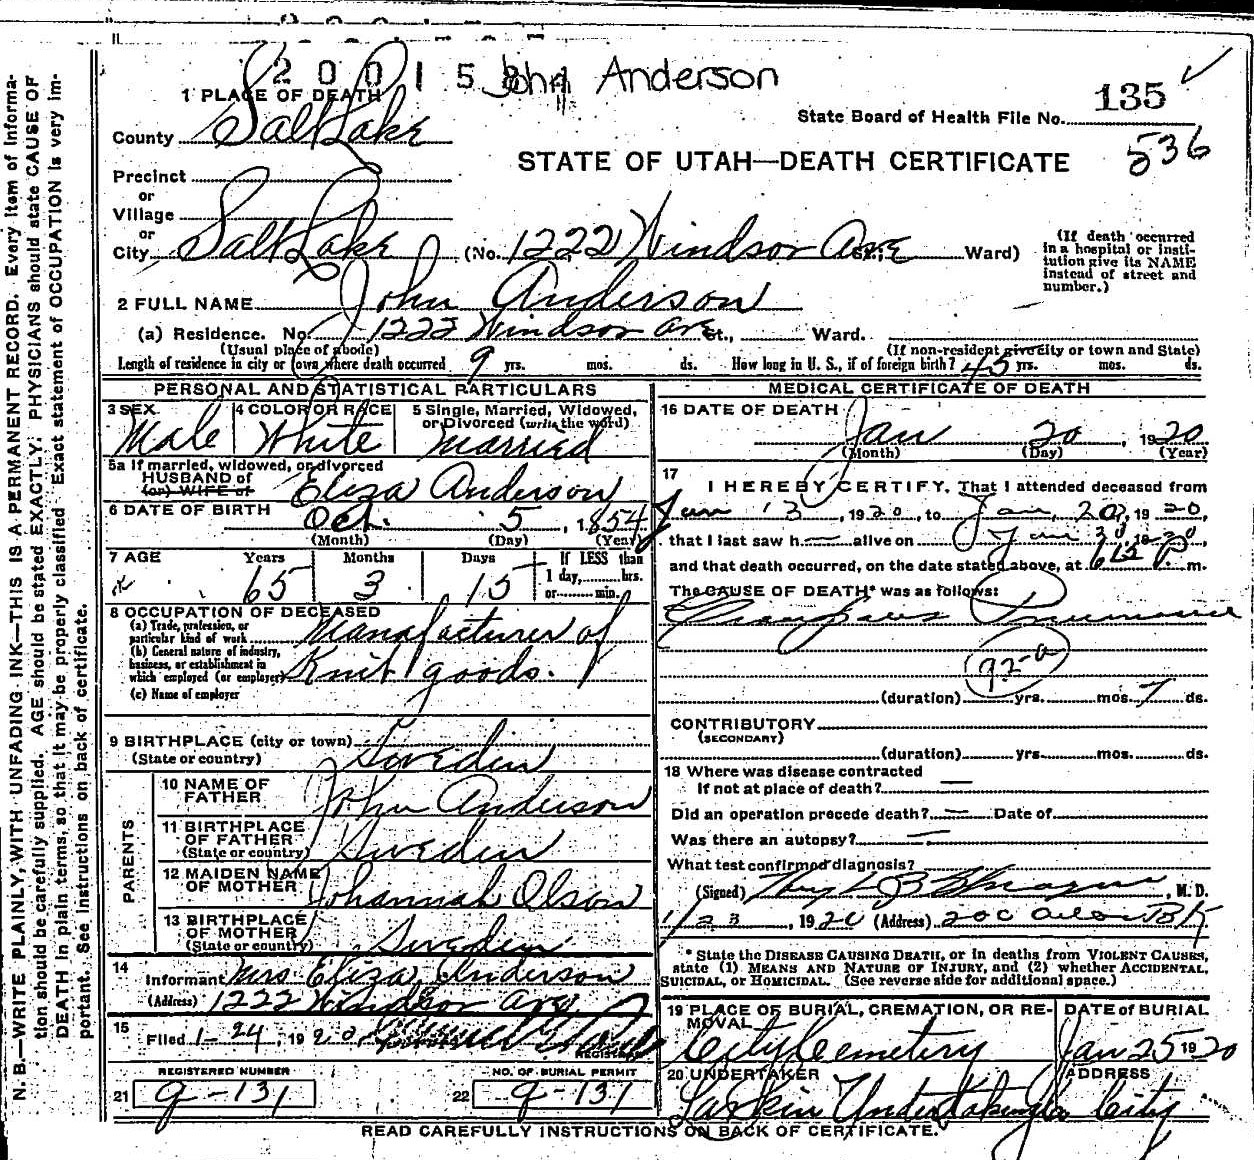 2001581
John Anderson
135
State Board of Health File No.
536
STATE OF UTAH—DEATH CERTIFICATE
1 PLACE OF DEATH
County Salt Lake
Precinct
or
Village
or
City Salt Lake (No. 1222 Windsor Ave St., Ward)
(If death occurred in a hospital or institution give its NAME instead of street and number.)
2 FULL NAME John Anderson
(a) Residence. No. 1222 Windsor Ave St., Ward.
(Usual place of abode) (If non-resident give city or town and State)
Length of residence in city or town where death occurred 9 yrs. mos. ds. How long in U. S., if of foreign birth? 45 yrs. mos. ds.
PERSONAL AND STATISTICAL PARTICULARS
3 SEX Male
4 COLOR OR RACE White
5 Single, Married, Widowed, or Divorced (write the word) Married
5a If married, widowed, or divorced
HUSBAND of
(or) WIFE of Eliza Anderson
6 DATE OF BIRTH Oct. 5, 1854
(Month) (Day) (Year)
7 AGE Years 65 Months 3 Days 15 If LESS than 1 day, hrs. or min.
8 OCCUPATION OF DECEASED
(a) Trade, profession, or particular kind of work Manufacturer of
(b) General nature of industry, business, or establishment in which employed (or employer) Knit goods.
(c) Name of employer
9 BIRTHPLACE (city or town)
(State or country) Sweden
PARENTS
10 NAME OF FATHER John Anderson
11 BIRTHPLACE OF FATHER (State or country) Sweden
12 MAIDEN NAME OF MOTHER Johannah Olson
13 BIRTHPLACE OF MOTHER (State or country) Sweden
14 Informant Mrs Eliza Anderson
(Address) 1222 Windsor Ave.
15 Filed 1-24, 1920
REGISTRAR
REGISTERED NUMBER
21 9-131
NO. OF BURIAL PERMIT
22 9-131
MEDICAL CERTIFICATE OF DEATH
16 DATE OF DEATH
Jan 20, 1920
(Month) (Day) (Year)
17 I HEREBY CERTIFY, That I attended deceased from
Jan 13, 1920, to Jan, 20, 1920,
that I last saw h— alive on Jan 20, 1920,
and that death occurred, on the date stated above, at 615 P. m.
The CAUSE OF DEATH* was as follows:
Pneumonia
92-a
(duration) yrs. mos. 7 ds.
CONTRIBUTORY
(SECONDARY)
(duration) yrs. mos. ds.
18 Where was disease contracted
If not at place of death? —
Did an operation precede death? — Date of
Was there an autopsy? —
What test confirmed diagnosis?
(Signed) , M. D.
1/23, 1920 (Address)
* State the DISEASE CAUSING DEATH, or in deaths from VIOLENT CAUSES, state (1) MEANS AND NATURE OF INJURY, and (2) whether ACCIDENTAL, SUICIDAL, or HOMICIDAL. (See reverse side for additional space.)
19 PLACE OF BURIAL, CREMATION, OR REMOVAL City Cemetery
DATE of BURIAL Jan 25 1920
20 UNDERTAKER Larkin Undertaking Co
ADDRESS City
READ CAREFULLY INSTRUCTIONS ON BACK OF CERTIFICATE.
N. B.—WRITE PLAINLY, WITH UNFADING INK—THIS IS A PERMANENT RECORD. Every item of information should be carefully supplied. AGE should be stated EXACTLY. PHYSICIANS should state CAUSE OF DEATH in plain terms, so that it may be properly classified. Exact statement of OCCUPATION is very important. See instructions on back of certificate.